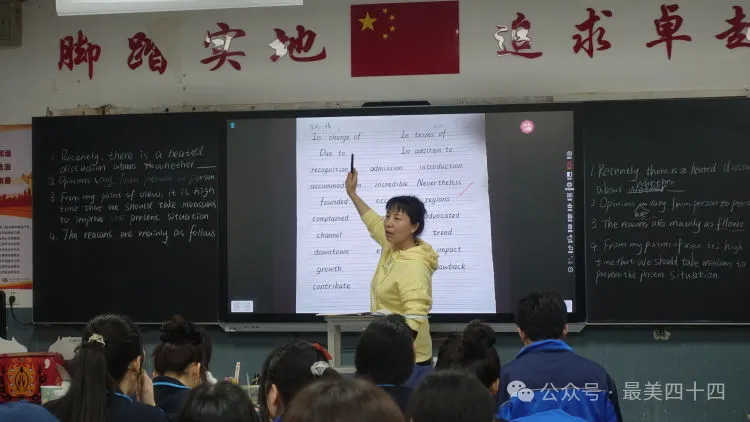 脚踏实地
追求卓
1. Recently, there is a heated
discussion about to whether
2. Opinions vary from person to person
3. From my point of view, it is high
time that we should take measures
to improve the present situation
4. The reasons are mainly as follows
In charge of In terms of
Due to In addition to
recognition admission introduction
accommodation incredible Nevertheless
founded regions
complained
channel trend
downtown impact
growth
contribute
1. Recently there is a heated discuss
about whether
2. Opinions vary from person to perso
are
3. The reasons are mainly as follows
4. From my point of view it is high
time that we should take measures to
the present situation.
公众号·最美四十四